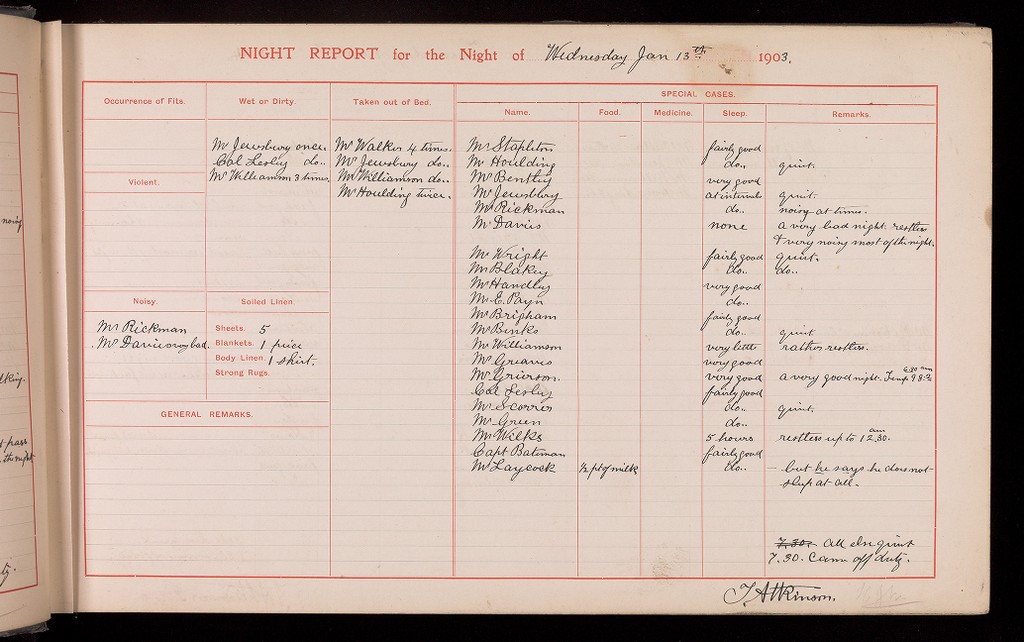 NIGHT REPORT for the Night of Wednesday Jan 13th 1903.
SPECIAL CASES.
Occurrence of Fits. Wet or Dirty. Taken out of Bed. Name. Food. Medicine. Sleep. Remarks.
Mr Jewsbury once. Mr Walker 4 times. Mr Stapleton fairly good
Col Lesley do.. Mr Jewsbury do.. Mr Houlding do.. quiet.
Violent. Mr Williamson 3 times. Mr Williamson do.. Mr Bently very good
Mr Houlding twice. Mr Jewsbury at intervals quiet.
Mr Rickman do.. noisy at times.
Mr Davies none a very bad night. restless
& very noisy most of the night.
Mr Wright fairly good quiet.
Mr Blakey do.. do..
Mr Handley very good
Mr E. Pryn do..
Noisy. Soiled Linen
Mr Brigham fairly good
Mr Rickman Sheets. 5 Mr Binks do.. quiet
Mr Davies very bad. Blankets. 1 piece Mr Williamson very little rather restless.
Body Linen. 1 shirt. Mr Greaves very good
Strong Rugs. Mr Grierson. very good a very good night. Temp 6.30 am 98.2
Col Lesley fairly good
GENERAL REMARKS. Mr Scorrer do.. quiet.
Mr Green do..
Mr Wilks 5 hours restless up to 12.30. am
Capt Bateman fairly good
Mr Laycock ½ pt of milk do.. – but he says he does not
sleep at all.
7.30. All else quiet
7.30. Came off duty.
T. Atkinson.
noisy
lking.
t pass
the night